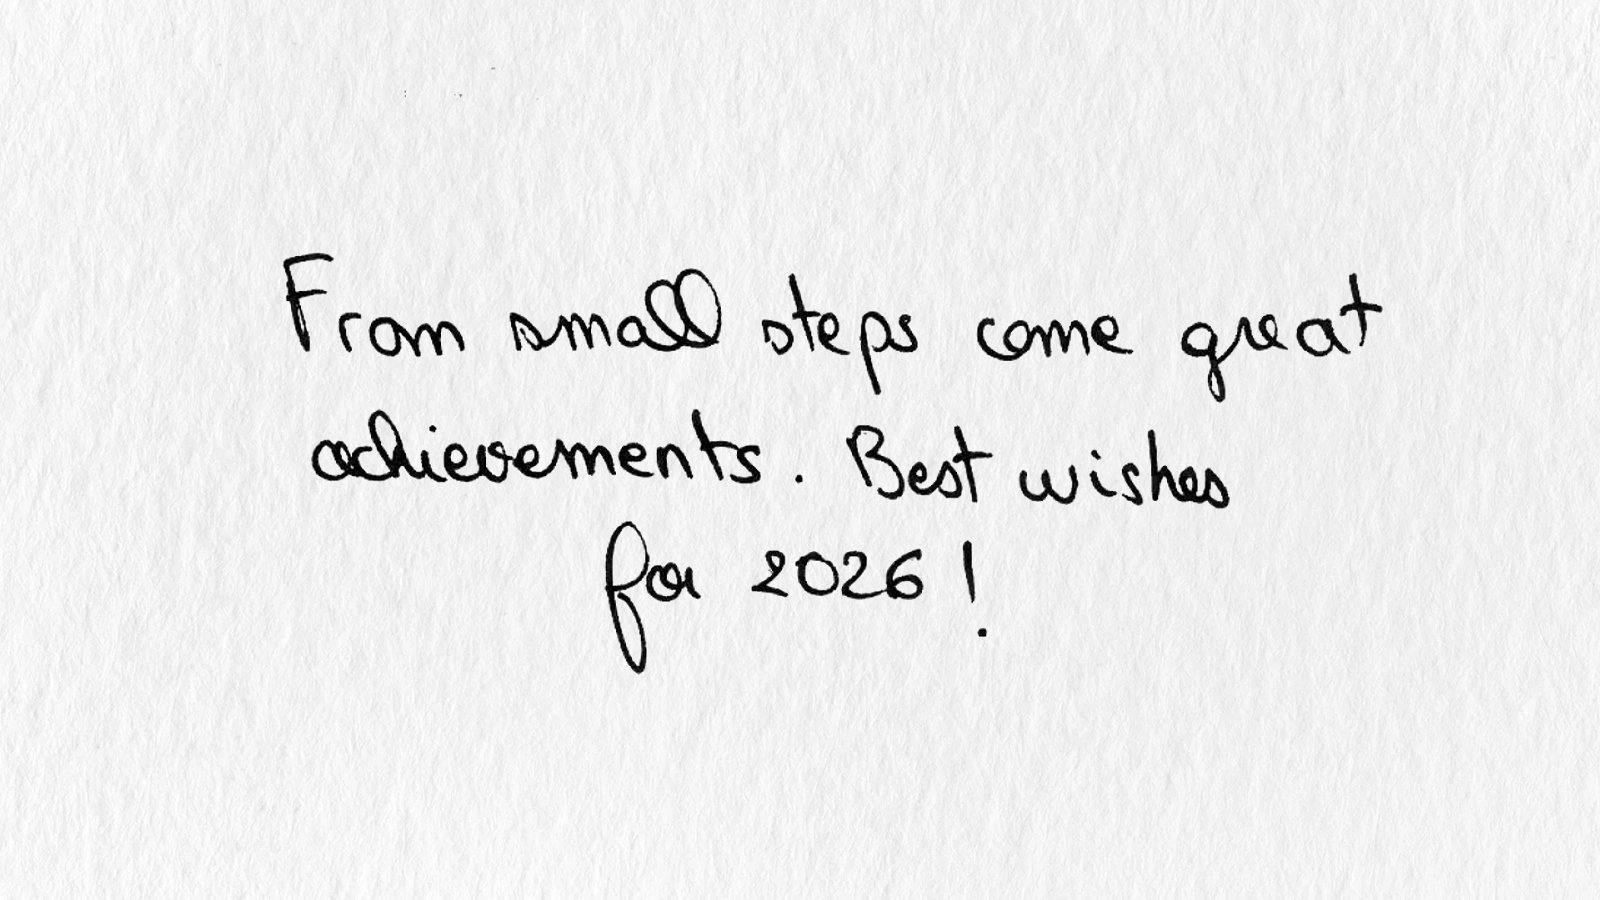 From small steps come great
achievements. Best wishes
for 2026!